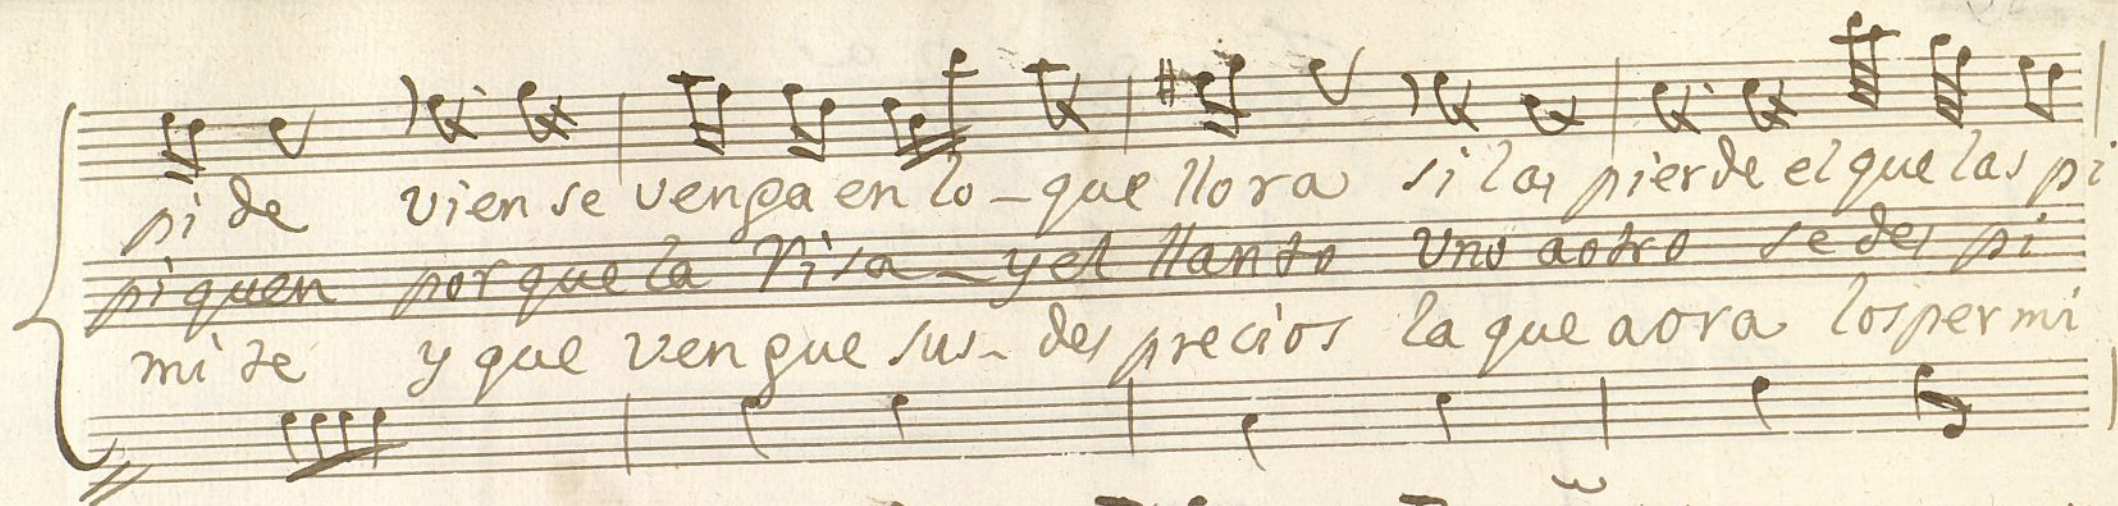 pi de vien se venga en lo - que llora si las pierde el que las pi
pi quen por que la Risa - y el llanto Uno a otro se des pi
mi te y que vengue sus - des precios la que aora los per mi